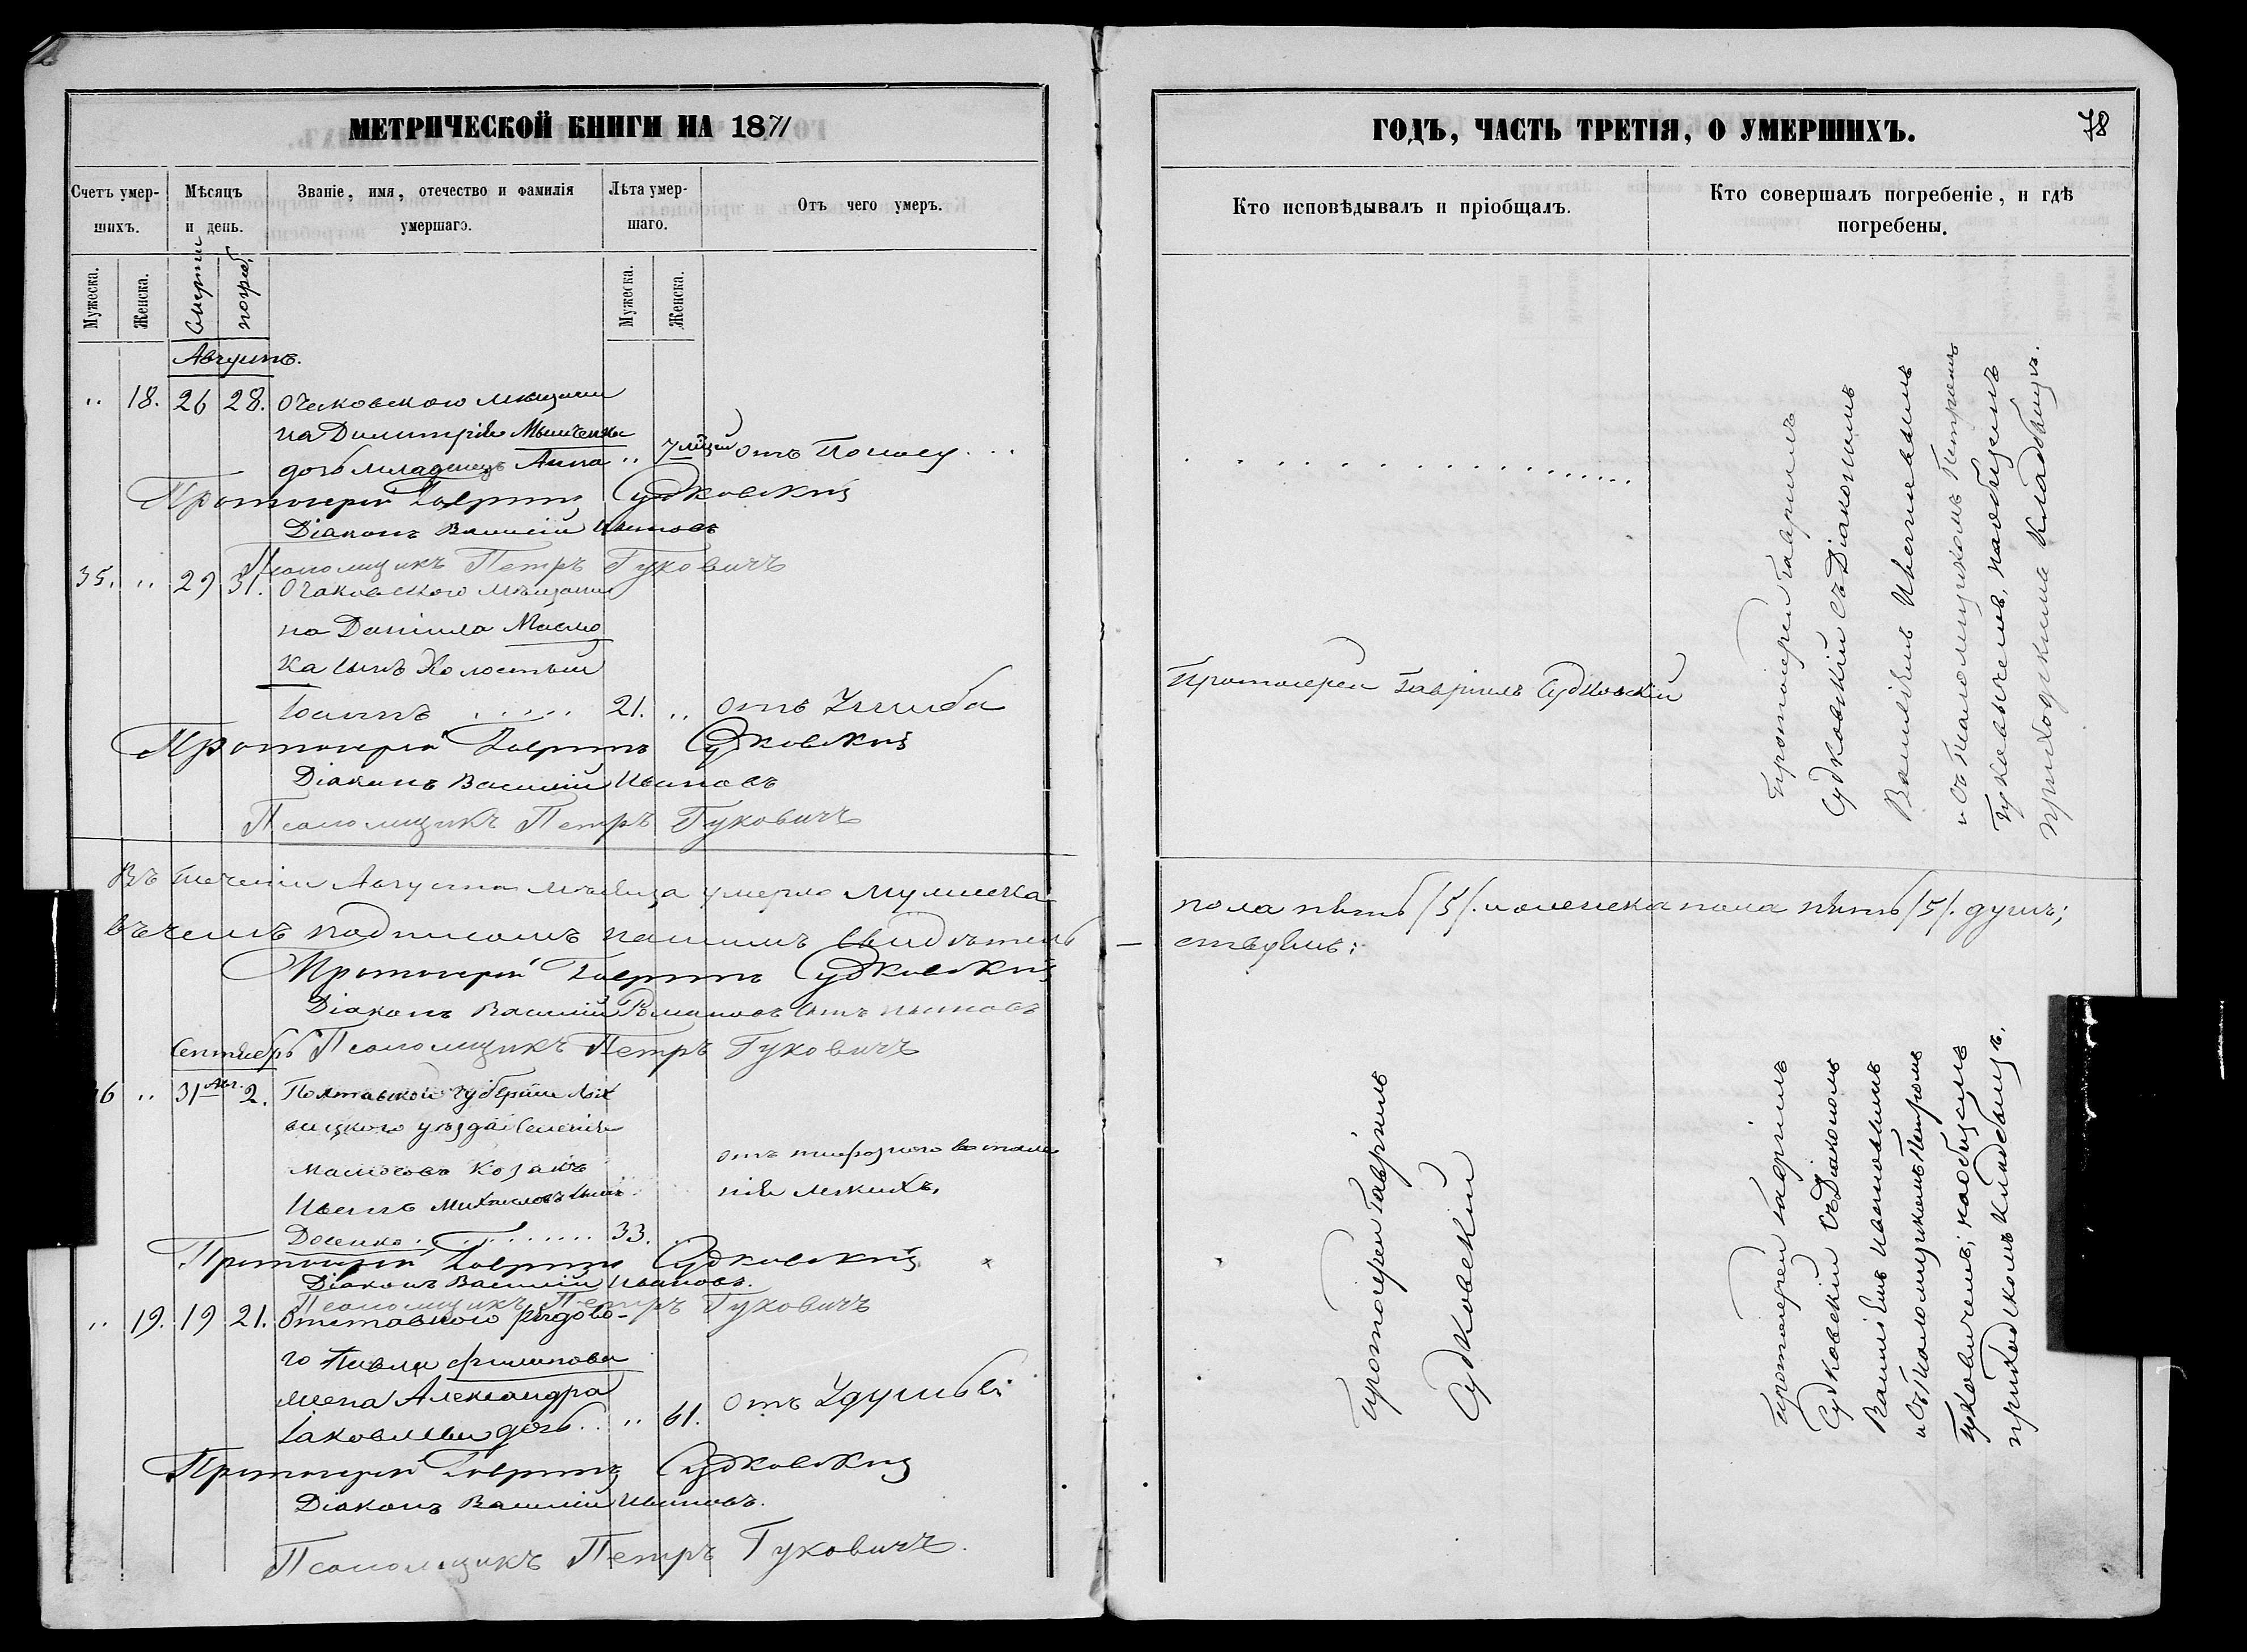 МЕТРИЧЕСКОЙ КНИГИ НА 1871
Счетъ умер-
шихъ.
Мѣсяцъ
и день.
Званіе, имя, отечество и фамилія
умершаго.
Лѣта умер-
шаго.
Отъ чего умеръ.
Мужеска.
Женска.
Смерти
погреб.
Мужеска.
Женска.
Августъ.
„ 18. 26 28. Очаковскаго мѣщани
на Димитрія
дочь младенецъ Анна „ 7 отъ Поносу...
Протоіерей Гавріилъ Судковскій
Діаконъ Василій Ивановъ
Псаломщикъ Петръ Гуковичъ
35. „ 29 31. Очаковского мѣщани
на Даніила Масло
ка сынъ Холостый
Іоаннъ ..... 21. „ отъ
Протоіерей Гавріилъ Судковскій
Діаконъ Василій Ивановъ
Псаломщикъ Петръ Гуковичъ
Въ теченіи Августа мѣсяца умерло мужеска
въ чемъ подписомъ нашимъ свидѣтель
Протоіерей Гавріилъ Судковскій
Діаконъ Василій
Сентябрь Псаломщикъ Петръ Гуковичъ
6 „ 31 Авг. 2. Полтавской губерніи Лох
вицкого уѣзда Селенія
Козакъ
Иванъ Михаиловъ сынъ
Доценко ........ 33.
отъ тифознаго воспале
нія легкихъ.
Протоіерей Гавріилъ Судковскій
Діаконъ Василій Ивановъ.
Псаломщикъ Петръ Гуковичъ
„ 19. 19 21. Отставного рядово-
го Павла Филипова
жена Александра
Іаковлева дочь .. „ 61. отъ Удушья
Протоіерей Гавріилъ Судковскій
Діаконъ Василій Ивановъ.
Псаломщикъ Петръ Гуковичъ.
ГОДЪ, ЧАСТЬ ТРЕТІЯ, О УМЕРШИХЪ.
78
Кто исповѣдывалъ и пріобщалъ.
Кто совершалъ погребеніе, и гдѣ
погребены.
Протоіерей Гавріилъ Судковскій
Протоіерей Гавріилъ
Судковскій съ Діакономъ
Василіемъ Ивановымъ
и съ Псаломщикомъ Петромъ
Гуковичемъ, на общемъ
приходскимъ кладбищѣ.
пола пять /5/. и женска пола пять /5/. душъ;
ствуемъ:
Протоіерей Гавріилъ
Судковскій
Протоіерей Гавріилъ
Судковскій съ Діакономъ
Василіемъ Ивановымъ
и съ Псаломщикомъ Петромъ
Гуковичемъ; на общемъ
приходскомъ кладбищѣ.